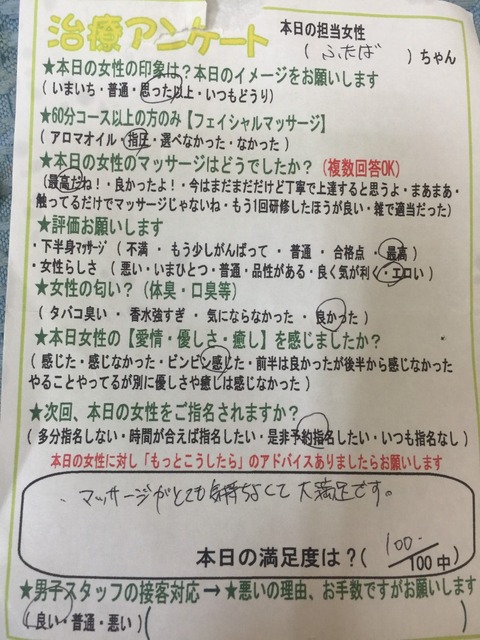 治療アンケート
本日の担当女性
( ふたば )ちゃん
★本日の女性の印象は?本日のイメージをお願いします
( いまいち・普通・思った以上・いつもどうり)
★60分コース以上の方のみ【フェイシャルマッサージ】
( アロマオイル・指圧・選べなかった・なかった )
★本日の女性のマッサージはどうでしたか? (複数回答OK)
(最高だね!・良かったよ!・今はまだまだけど丁寧で上達すると思うよ・まあまあ・
触ってるだけでマッサージじゃないね・もう1回研修したほうが良い・雑で適当だった)
★評価お願いします
・下半身マッサージ ( 不満 ・ もう少しがんばって ・ 普通 ・ 合格点 ・ 最高 )
・女性らしさ ( 悪い・いまひとつ・普通・品性がある・良く気が利く・エロい )
★女性の匂い? (体臭・口臭等)
( タバコ臭い ・ 香水強すぎ ・ 気にならなかった ・ 良かった )
★本日女性の【愛情・優しさ・癒し】を感じましたか?
( 感じた・感じなかった・ビンビン感じた・前半は良かったが後半から感じなかった
やることやってるが別に優しさや癒しは感じなかった )
★次回、本日の女性をご指名されますか?
( 多分指名しない・時間が合えば指名したい・是非予約指名したい・いつも指名なし )
本日の女性に対し「もっとこうしたら」のアドバイスありましたらお願いします
、マッサージがとても気持ちよくて大満足です。
本日の満足度は?( 100 /100中)
★男子スタッフの接客対応 → ★悪いの理由、お手数ですがお願いします
( 良い・普通・悪い ) ( )